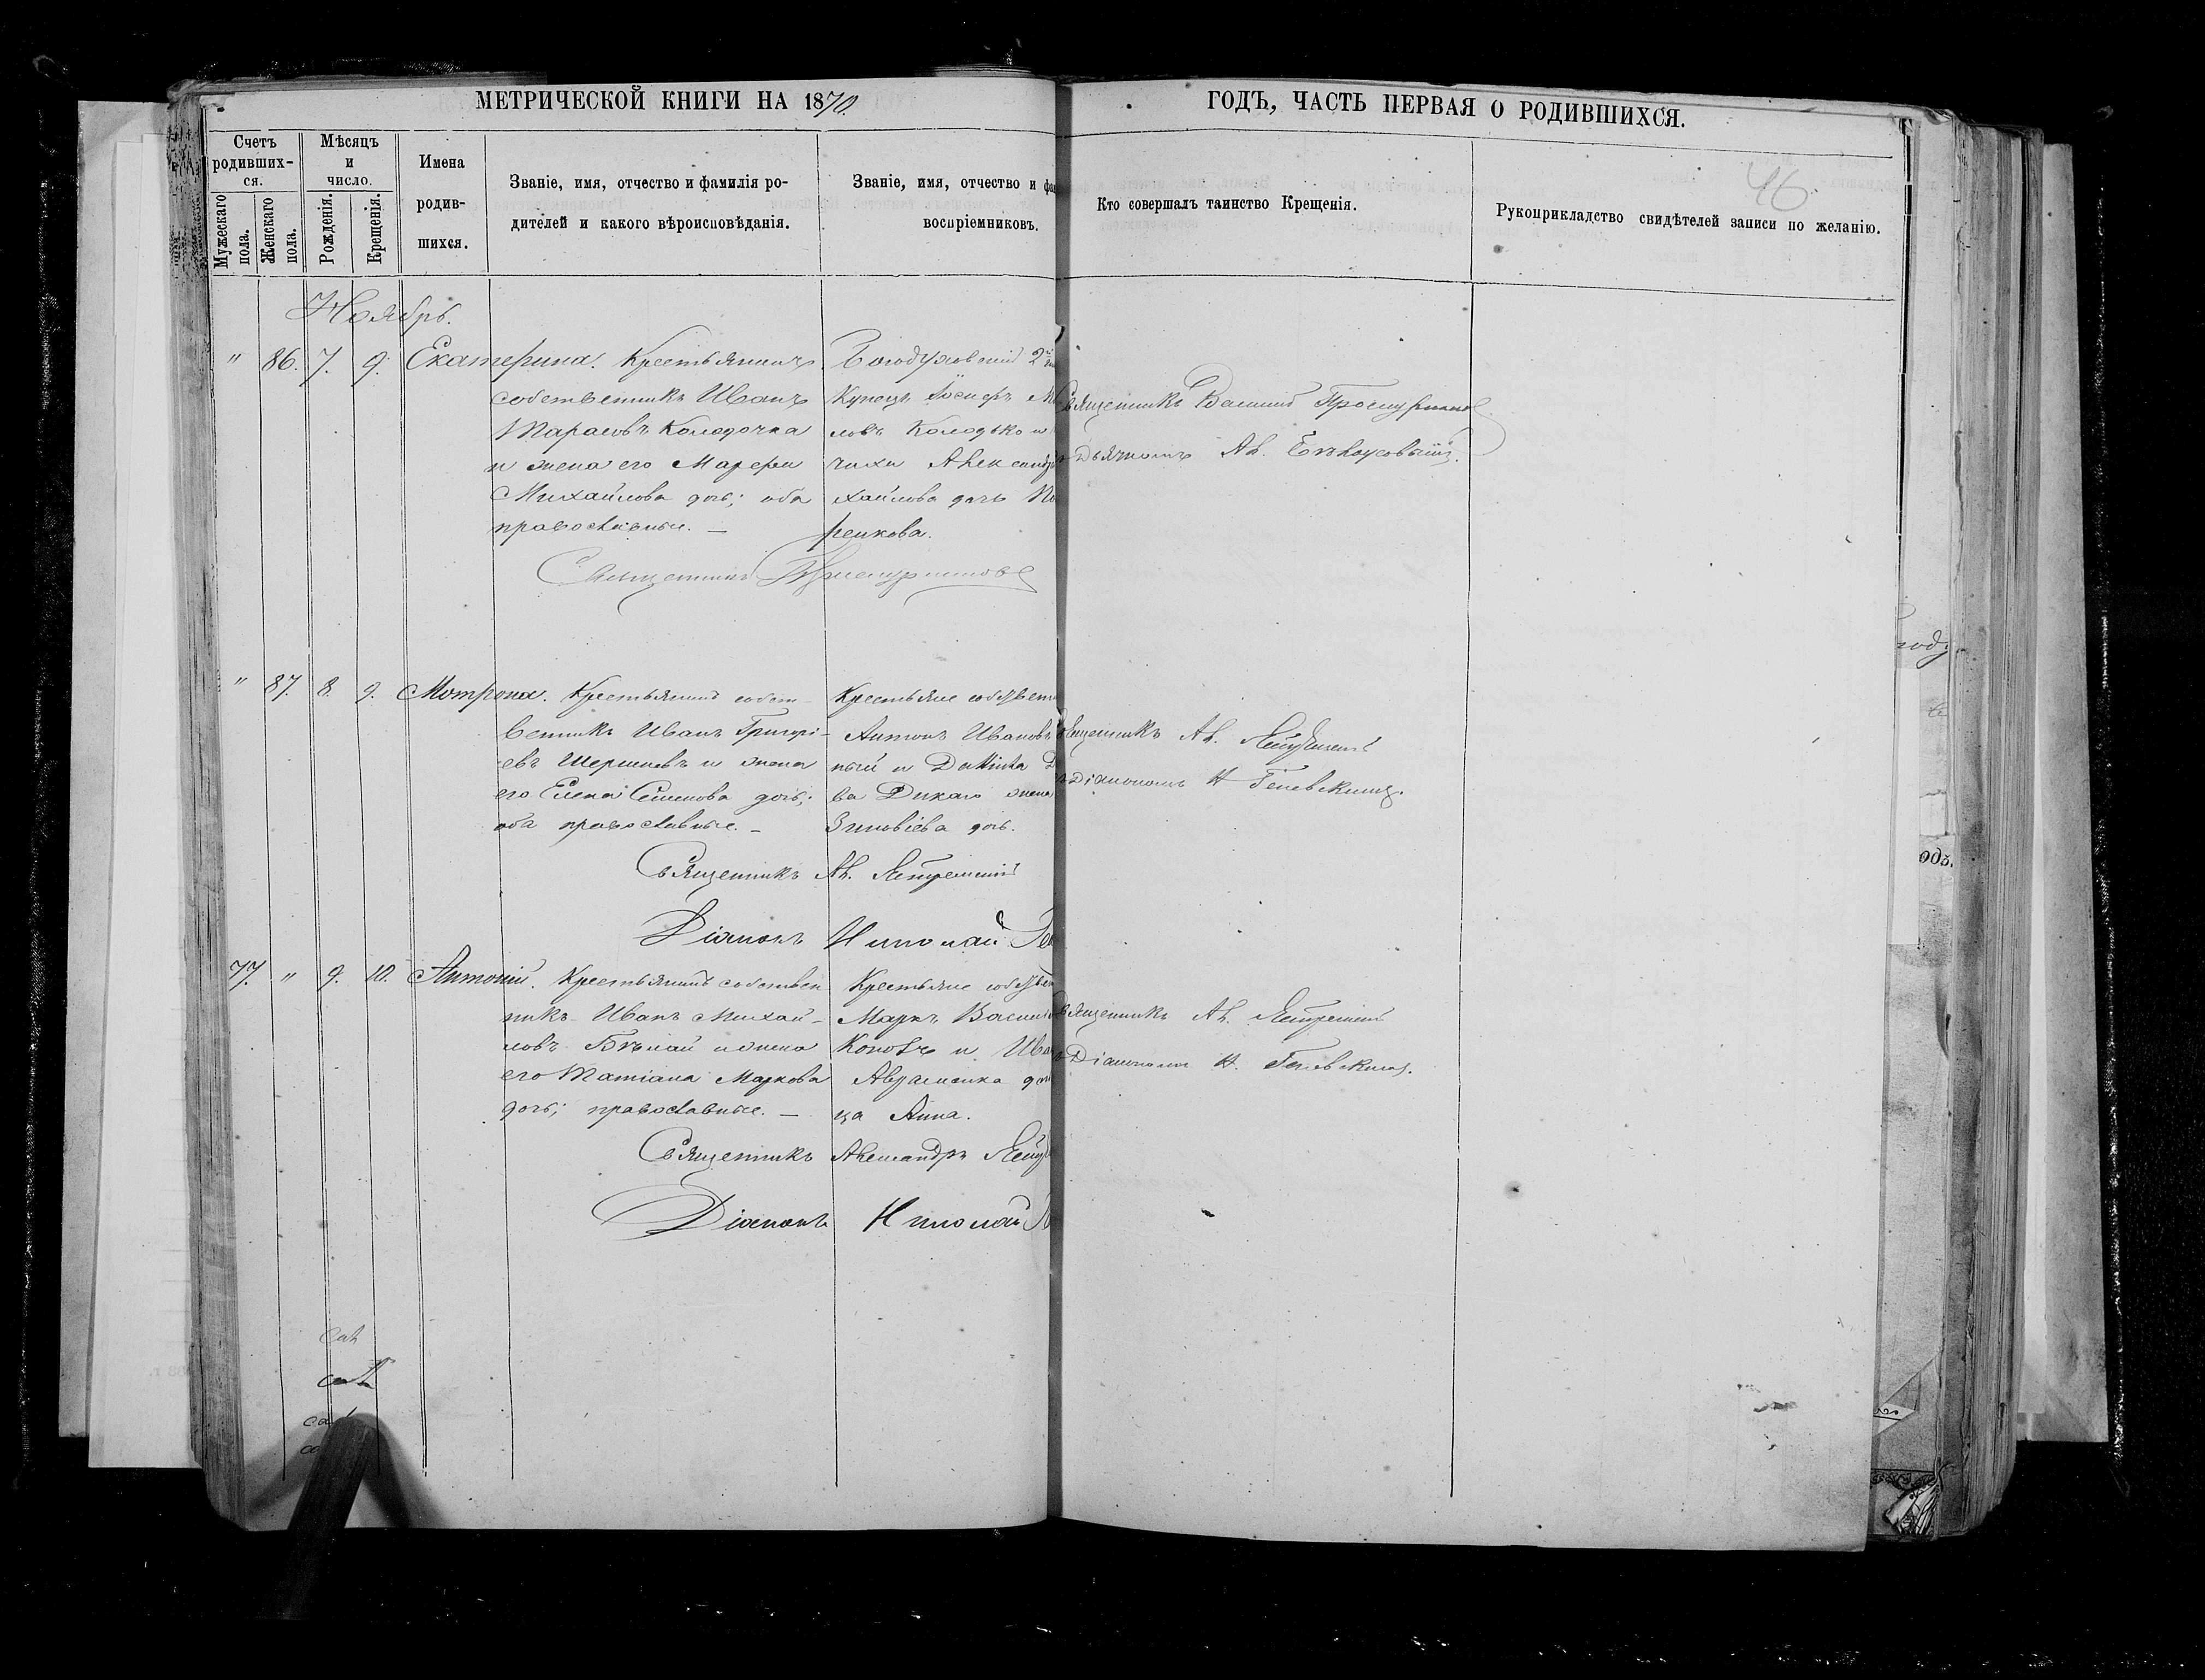 МЕТРИЧЕСКОЙ КНИГИ НА 1870.
ГОДЪ, ЧАСТЬ ПЕРВАЯ О РОДИВШИХСЯ.
46
Счетъ родивших-ся.
Мѣсяцъ и число.
Мужескаго пола.
Женскаго пола.
Рожденія.
Крещенія.
Имена родив-шихся.
Званіе, имя, отчество и фамилія ро-
дителей и какого вѣроисповѣданія.
Званіе, имя, отчество и фам
воспріемниковъ.
Кто совершалъ таинство Крещенія.
Рукоприкладство свидѣтелей записи по желанію.
Ноябрь.
" 86. 7. 9. Екатерина. Крестьянинъ
собственникъ Иванъ
Тарасовъ Колодочка
и жена его Марфа
Михайлова дочь; оба
православные. —
Богодуховскій 2й
Купецъ Іосифъ М
ловъ Колодько и
чиха Александр
хайлова дочь По
ренкова.
Священникъ Василій
Дьячкомъ Ал. Бѣлоусовымъ.
Священникъ
" 87. 8. 9. Мотрона. Крестьянинъ собст
венникъ Иванъ Григорі-
евъ Шершневъ и жена
его Елена Семенова дочь;
оба православные. —
Крестьяне собствен
Антонъ Ивановъ
ный и Домника
ва Дикаго жена
Зиновіева дочь.
вященникъ Ал.
Діакономъ Н.
Священникъ Ал.
Діаконъ Николай
77. " 9. 10. Антоній. Крестьянинъ собствен
никъ Иванъ Михай-
ловъ Бѣлай и жена
его Татіана Маркова
дочь; православные. —
Крестьяне собствен
Маркъ Василь
Коновъ и Ива
Авраменка доч
ца Анна.
вященникъ Ал.
Діакономъ Н.
Священникъ Александръ
Діаконъ Николай
годъ